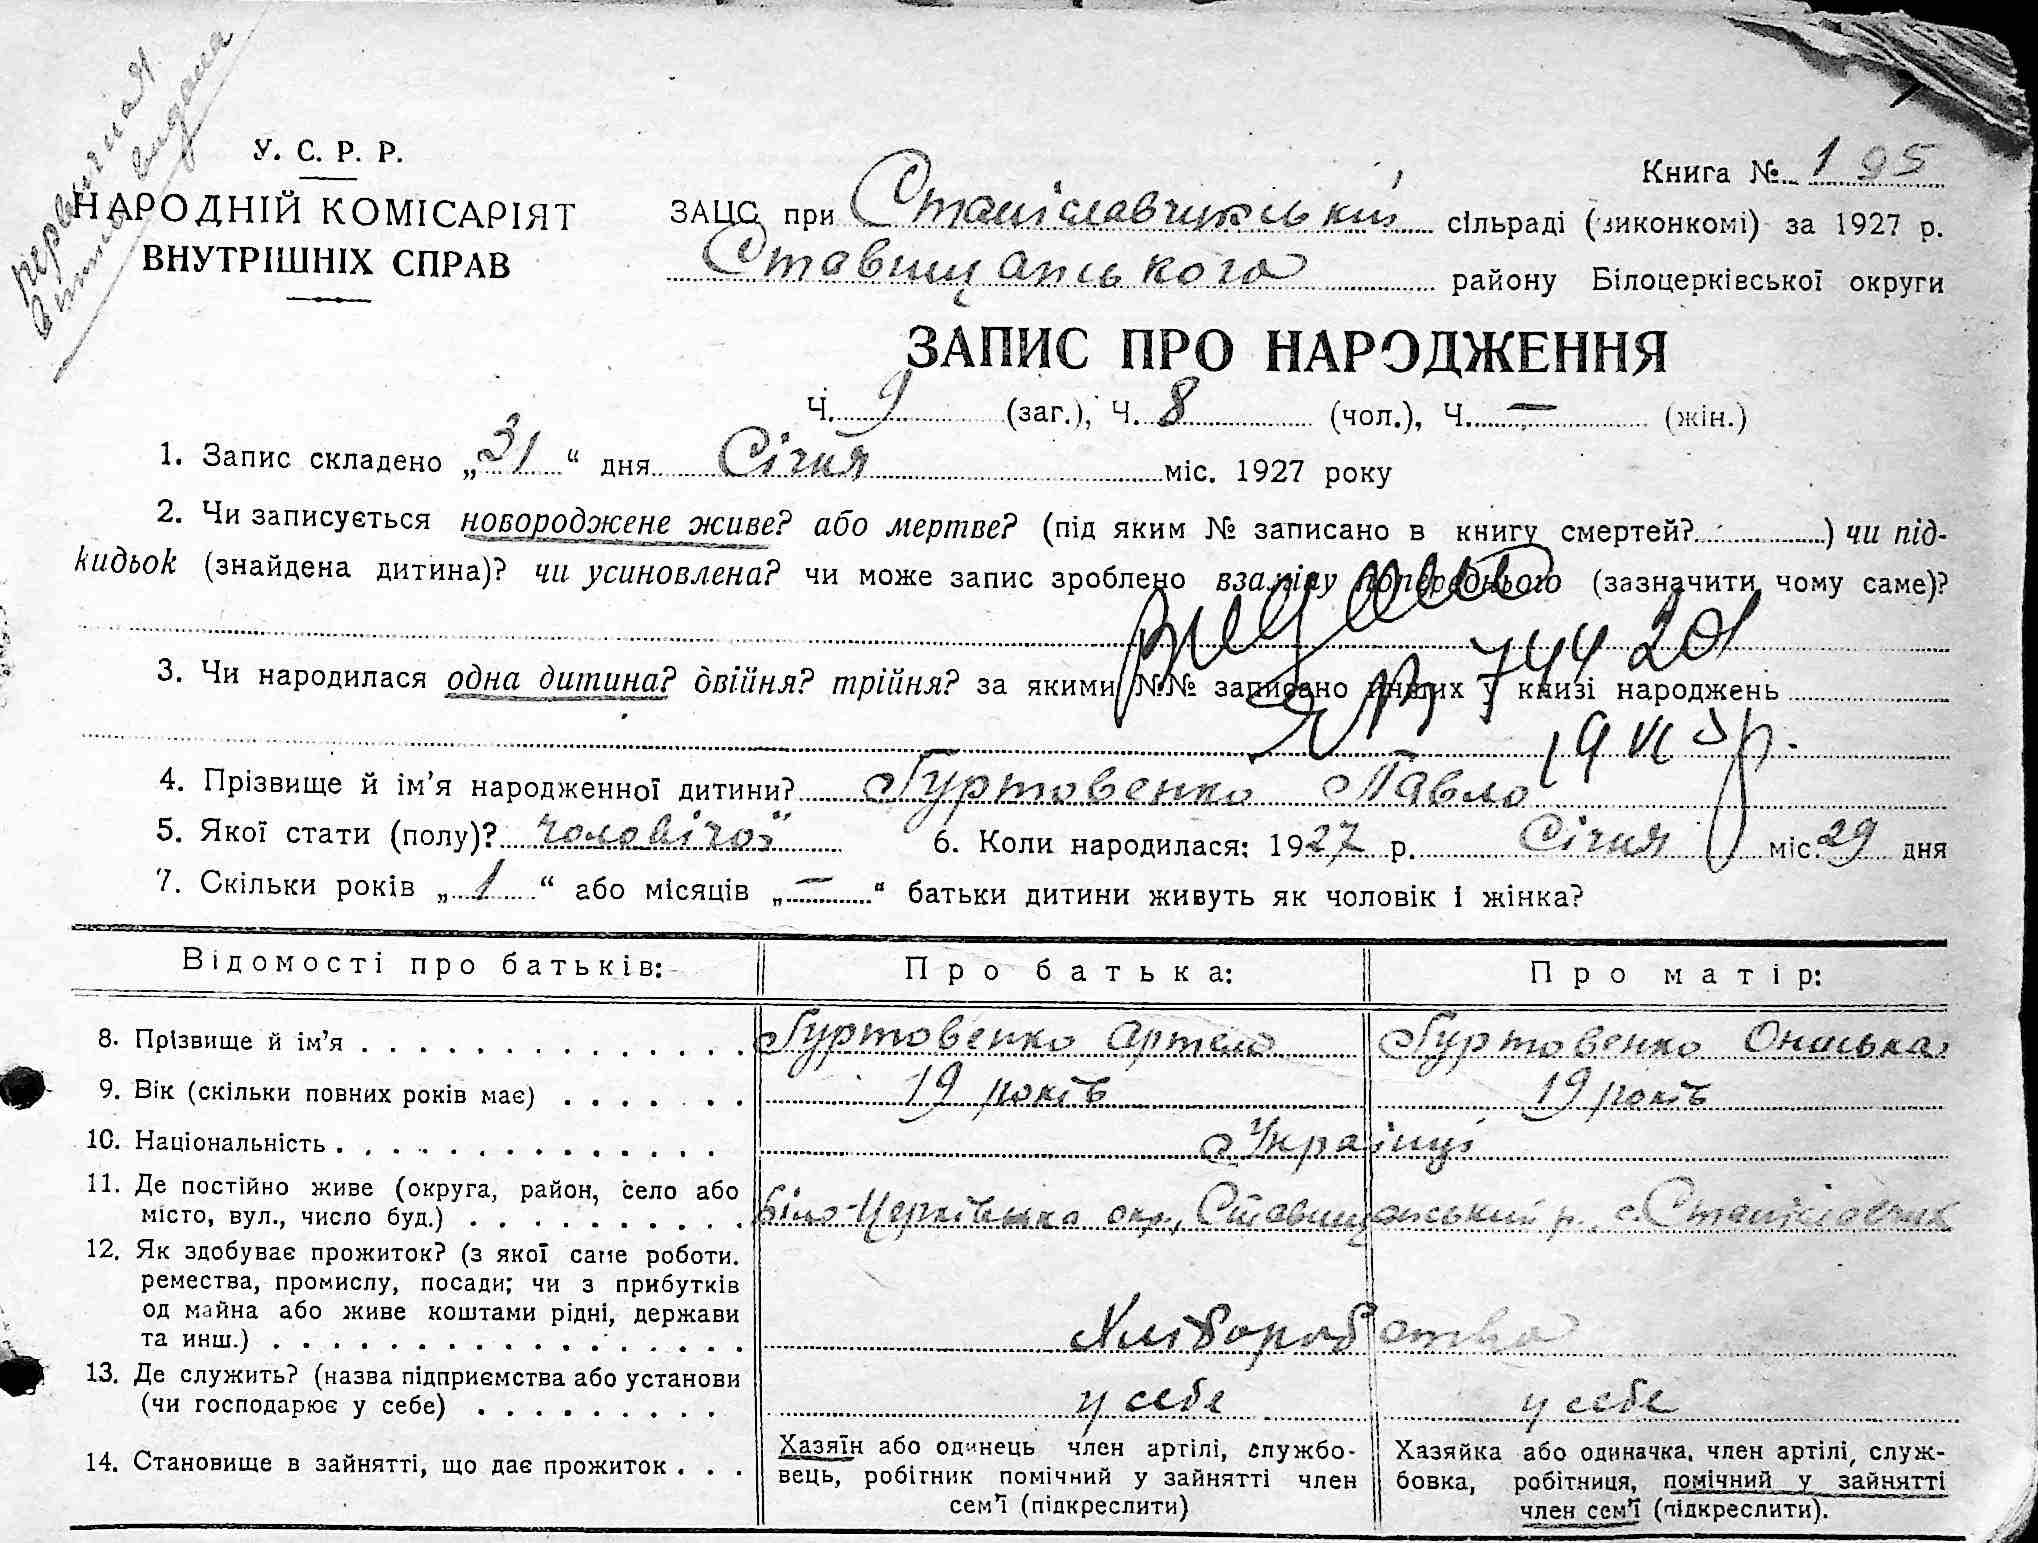 первичная
видана
У. С. Р. Р.
НАРОДНІЙ КОМІСАРІЯТ
ВНУТРІШНІХ СПРАВ
Книга № 195
ЗАЦС при Станіславчикській сільраді (виконкомі) за 1927 р.
Ставищанського району Білоцерківської округи
ЗАПИС ПРО НАРОДЖЕННЯ
Ч. 9 (заг.), Ч. 8 (чол.), Ч. — (жін.)
1. Запис складено „31“ дня Січня міс. 1927 року
2. Чи записується новороджене живе? або мертве? (під яким № записано в книгу смертей? ) чи під-
кидьок (знайдена дитина)? чи усиновлена? чи може запис зроблено взамін попереднього (зазначити чому саме)?
744201
3. Чи народилася одна дитина? двійня? трійня? за якими №№ записано инших у книзі народжень
4. Прізвище й ім’я народженної дитини? Гуртовенко Павло
5. Якої стати (полу)? чоловічої 6. Коли народилася: 1927 р. Січня міс. 29 дня
7. Скільки років „1“ або місяців „—“ батьки дитини живуть як чоловік і жінка?
Відомості про батьків: Про батька: Про матір:
8. Прізвище й ім’я Гуртовенко Артем Гуртовенко Ониська
9. Вік (скільки повних років має) 19 років 19 років
10. Національність Українці
11. Де постійно живе (округа, район, село або
місто, вул., число буд.) Біло-Церківська окр., Ставищанський р., с. Станіславчик
12. Як здобуває прожиток? (з якої саме роботи.
ремества, промислу, посади; чи з прибутків
од майна або живе коштами рідні, держави
та инш.) Хліборобство
13. Де служить? (назва підприємства або установи
(чи господарює у себе) у себе у себе
14. Становище в зайнятті, що дає прожиток
Хазяїн або одинець член артілі, службо-
вець, робітник помічний у зайнятті член
сем’ї (підкреслити)
Хазяйка або одиначка, член артілі, служ-
бовка, робітниця, помічний у зайнятті
член сем’ї (підкреслити).